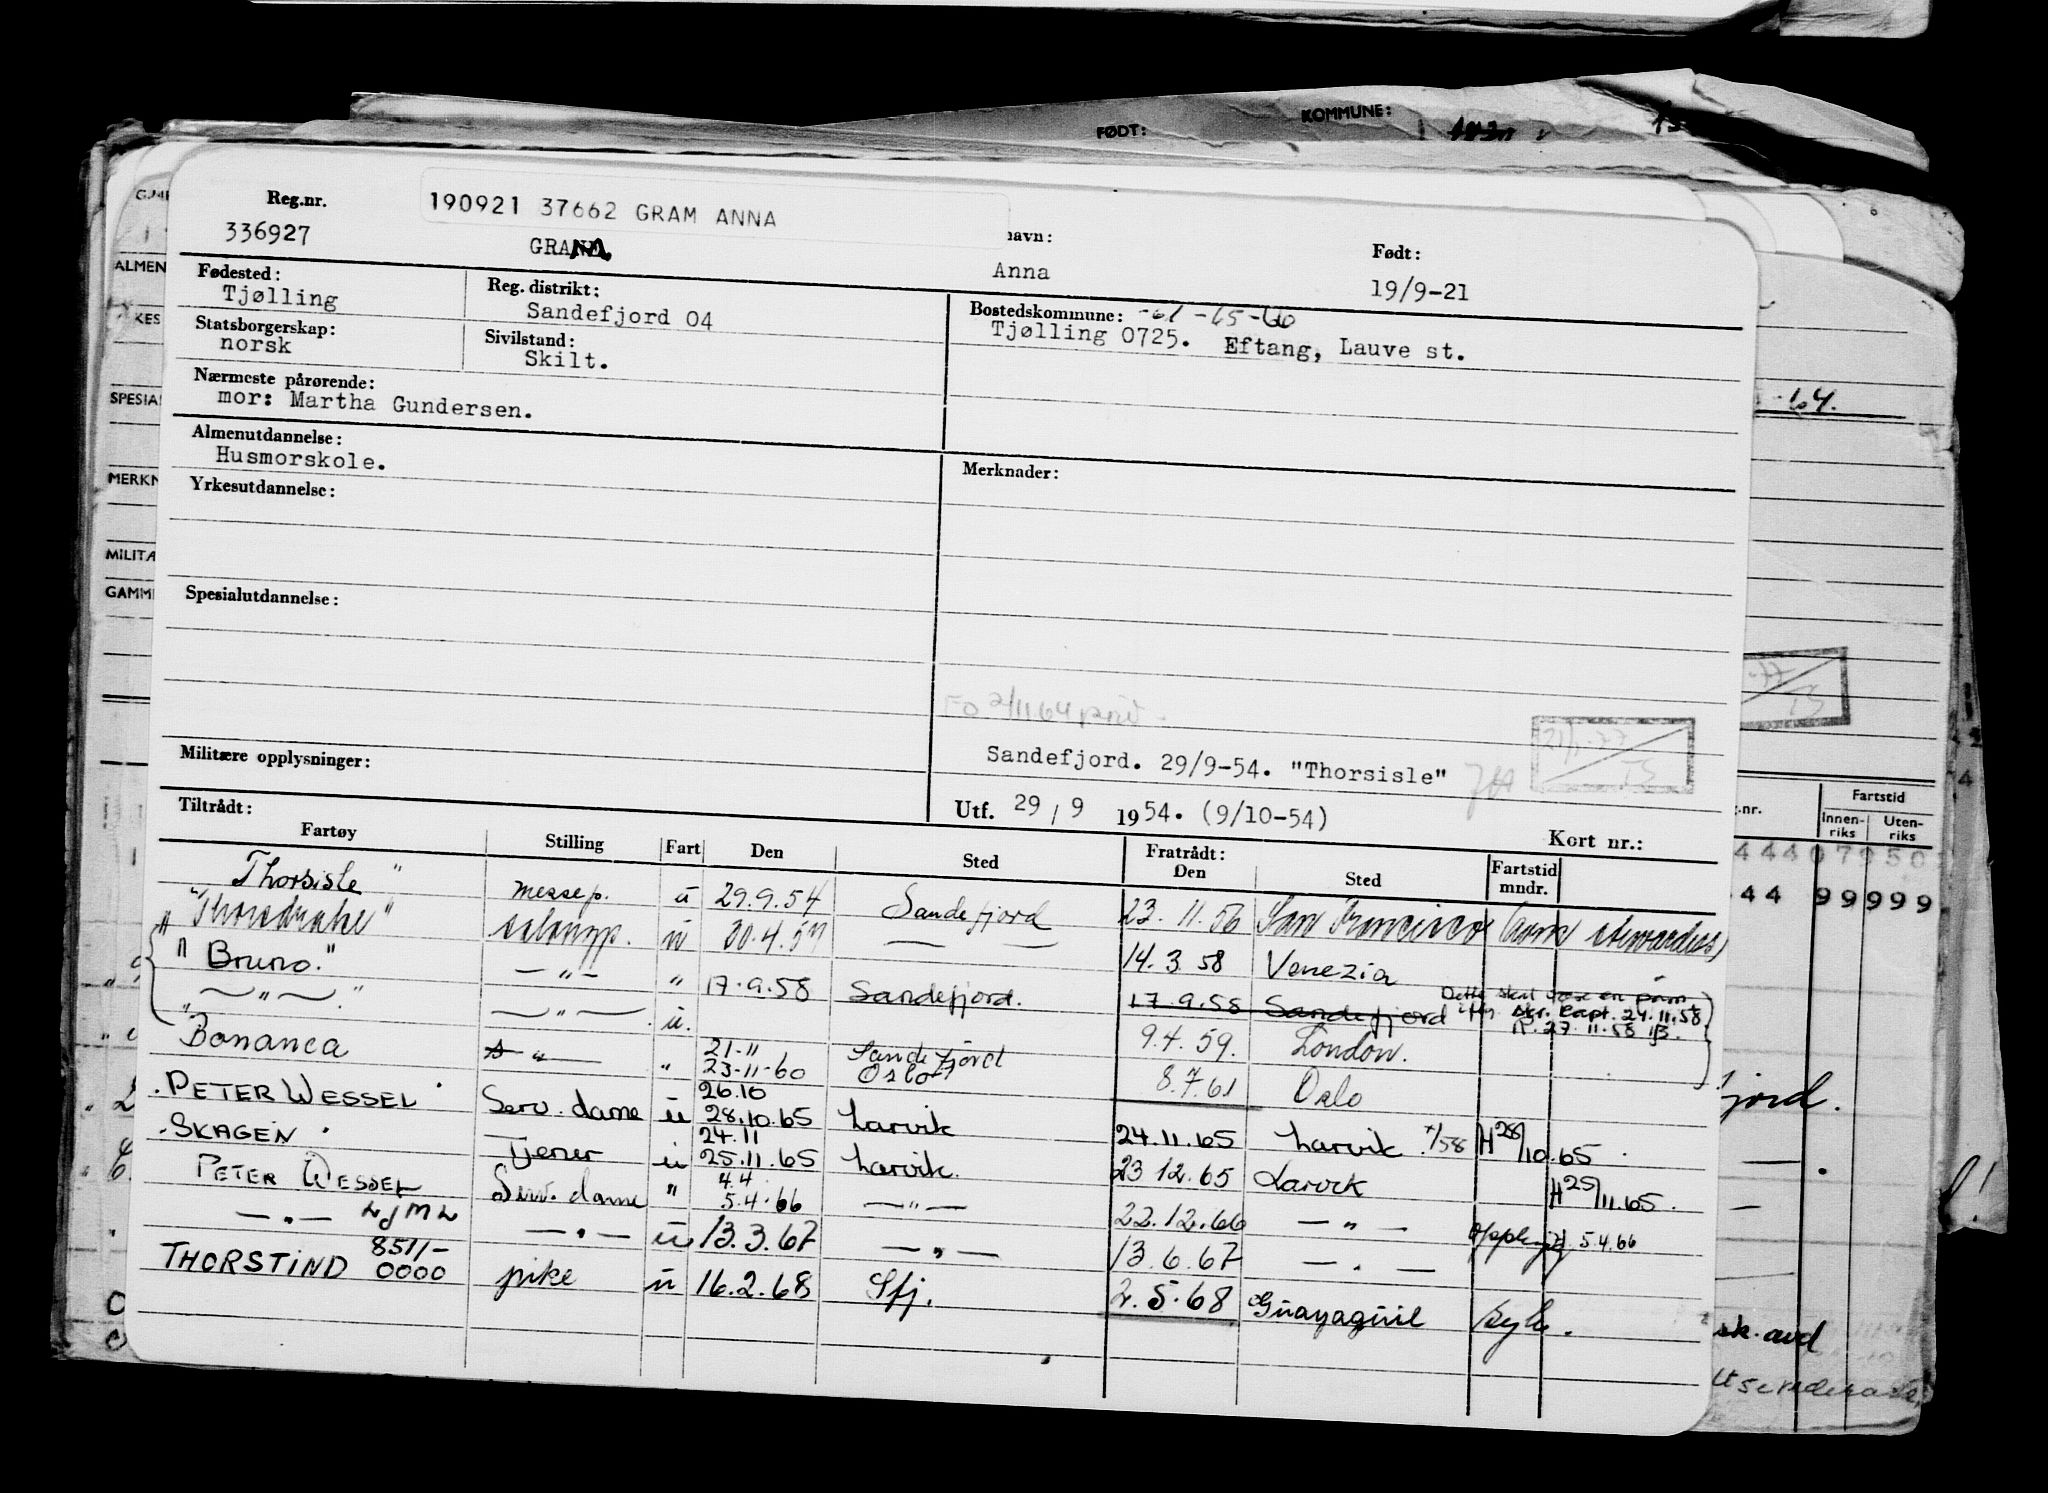 FØDT: KOMMUNE:
Reg.nr. 190921 37662 GRAM ANNA
336927 GRAM Anna Født: 19/9-21
Fødested: Reg. distrikt: Bostedskommune: -61 -65-66
Tjølling Sandefjord 04 Tjølling 0725. Eftang, Lauve st.
Statsborgerskap: Sivilstand:
norsk Skilt.
Nærmeste pårørende:
mor: Martha Gundersen.
Almenutdannelse: Merknader:
Husmorskole.
Yrkesutdannelse:
Spesialutdannelse:
Militære opplysninger: Sandefjord. 29/9-54. "Thorsisle"
Utf. 29 / 9 1954. (9/10-54)
Tiltrådt: Kort nr.:
Fartøy Stilling Fart Den Sted Fratrådt: Den Sted Fartstid mndr.
"Thorsisle" messep. u 29.9.54 Sandefjord 23.11.56 San Francisco
"Thorsdrake" u 14.3.58 Venezia
"Bruno." — " — " 17.9.58 Sandefjord. 17.9.58 Sandefjord
— " — — " — u. 9.4.59. London.
Bonanca — " — " 21-11 23-11-60 Sandefjord Oslo 8.7.61 Oslo
PETER WESSEL Serv. dame u 26.10 28.10.65 Larvik 24.11.65 Larvik H 28/10.65
SKAGEN Tjener u 24.11 25.11.65 Larvik. 23 12.65 Larvik H 25/11.65.
PETER WESSEL Serv. dame " 4.4 5.4.66 — " — 22.12.66 — " — 5.4.66
— " — LJML — " — u 13.3.67 — " — 13.6.67 — " —
THORSTIND 851/- 0000 pike u 16.2.68 Sfj. 2.5.68 Guayaquil syk.